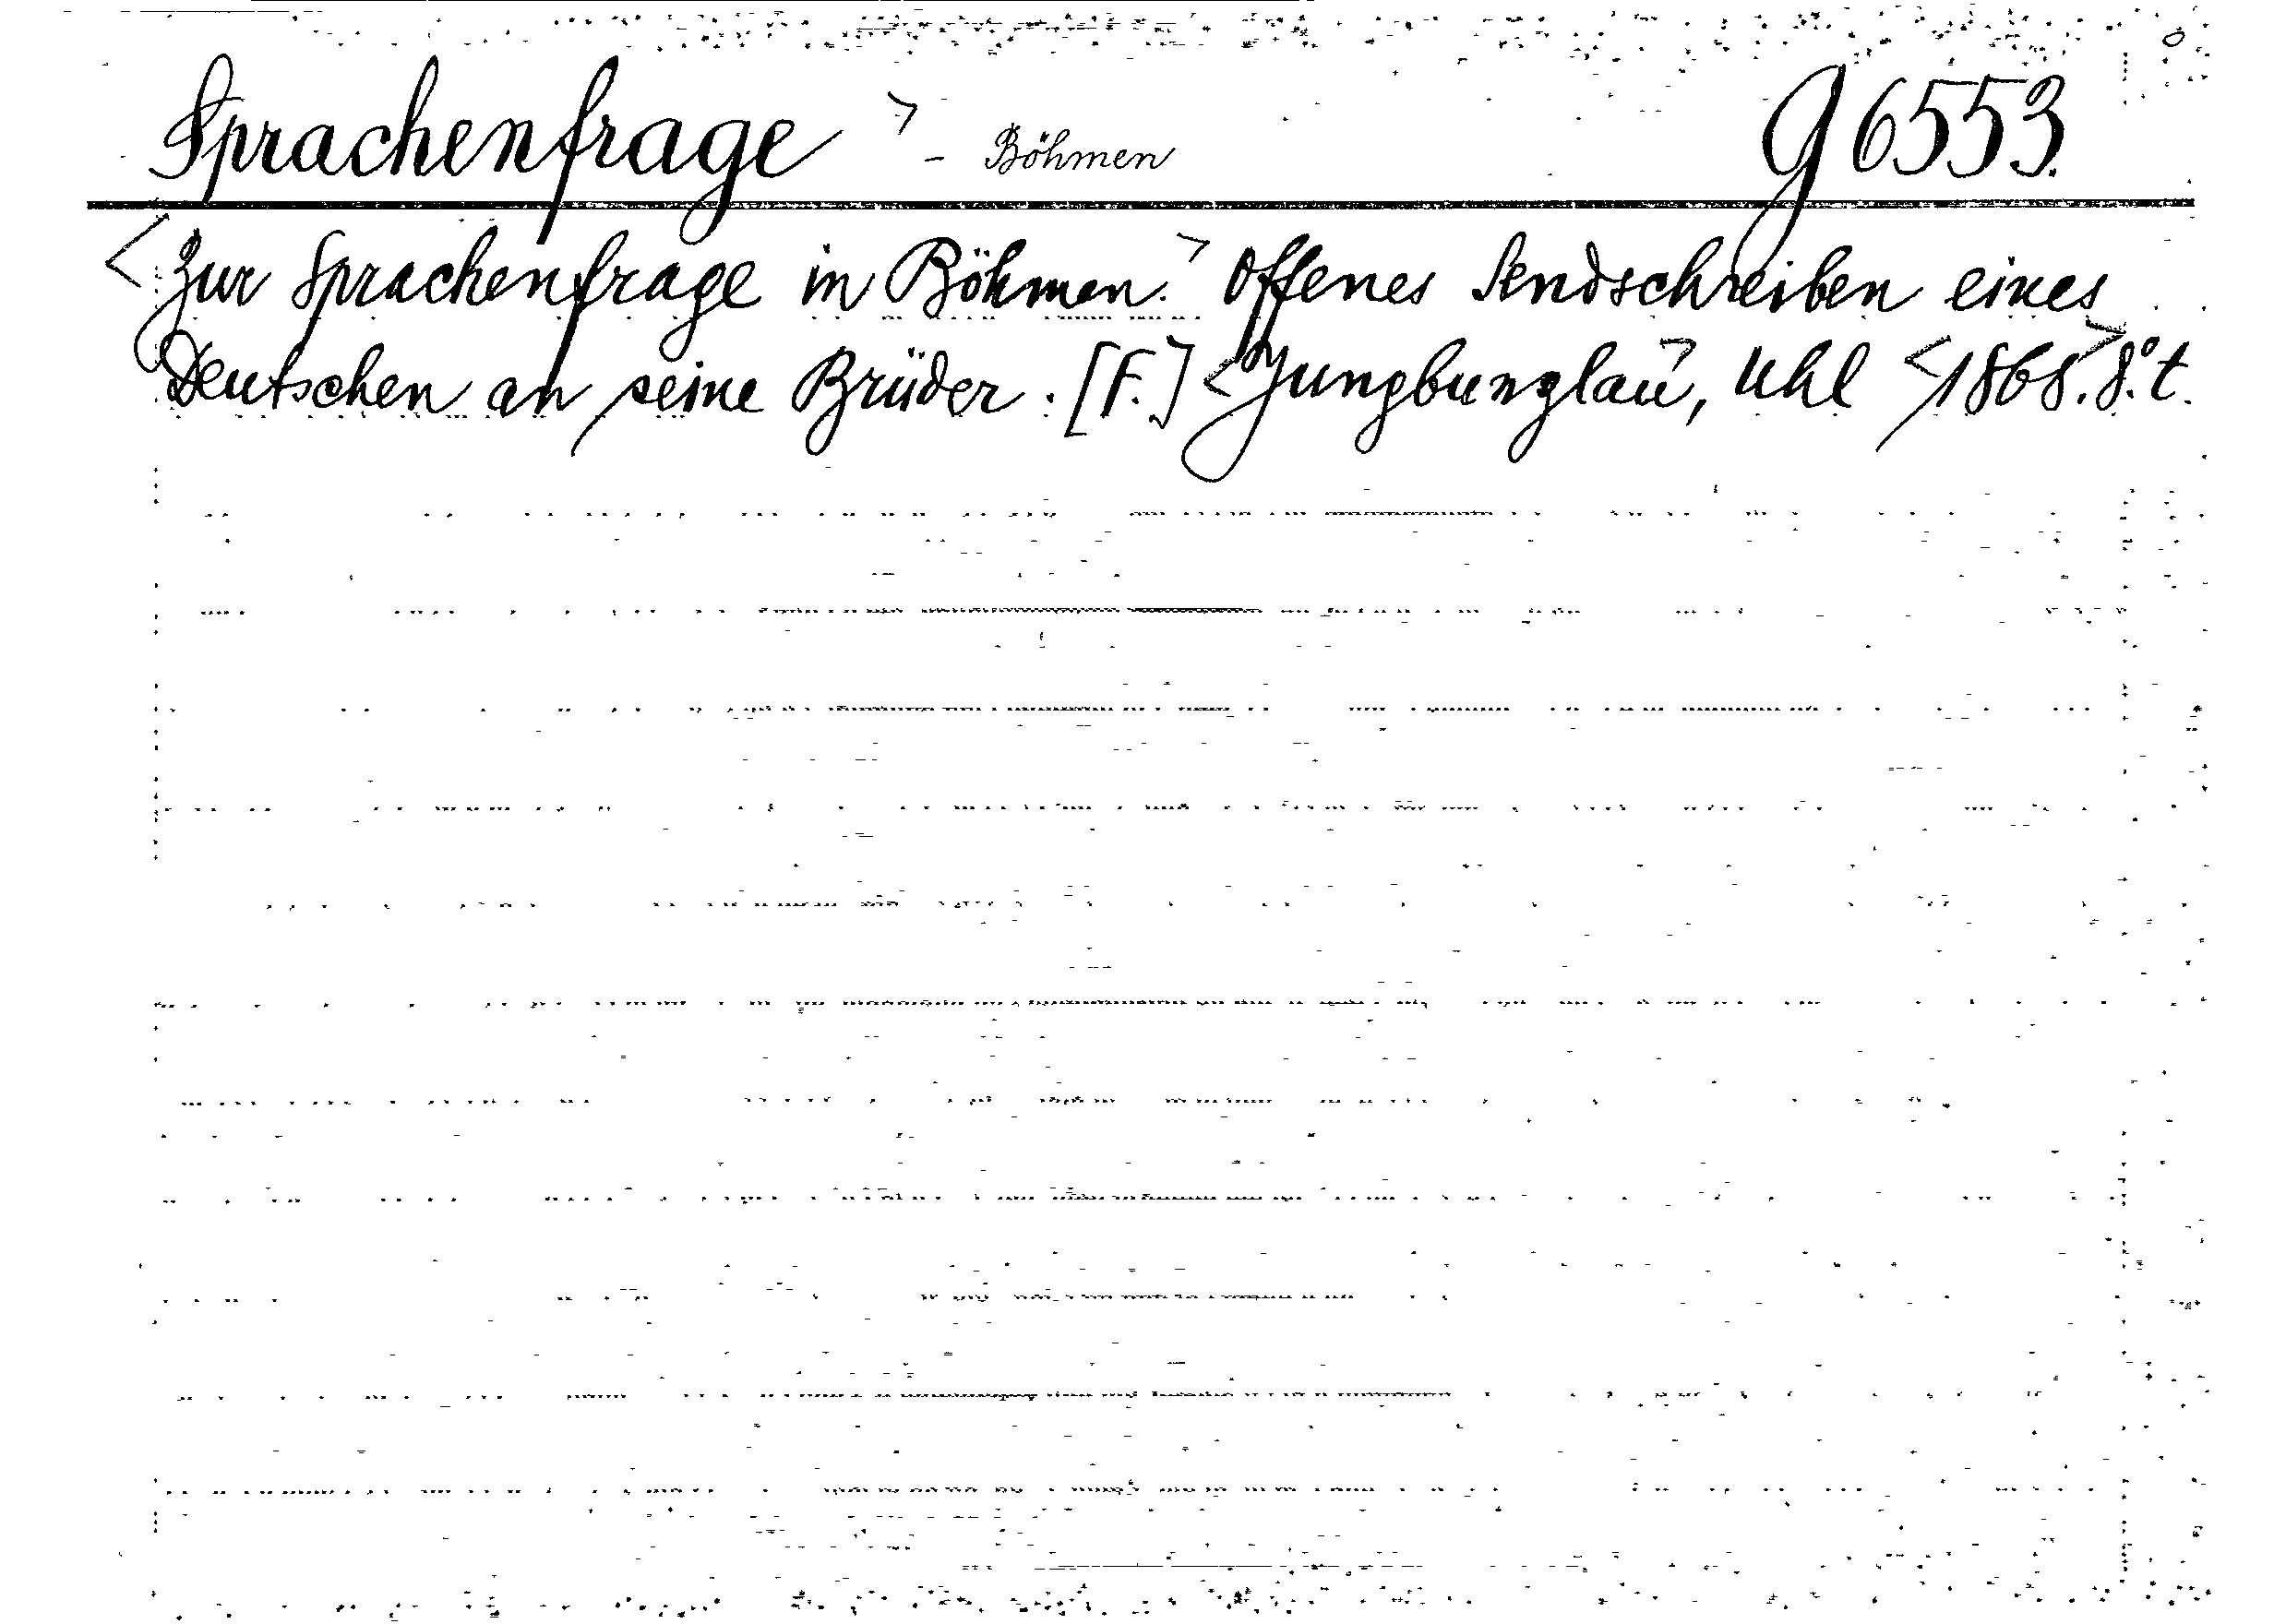 Sprachenfrage> - Böhmen g 6553.
<Zur Sprachenfrage in Böhmen.> Offenes Sendschreiben eines
Deutschen an seine Brüder. [F.] <Jungbunzlau>, Uhl <1868.> 8.° t.